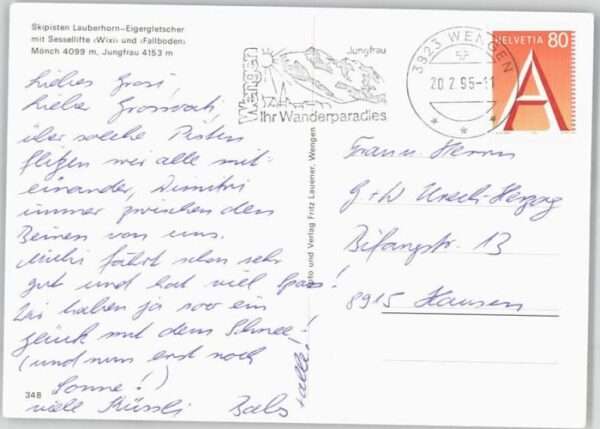 Skipisten Lauberhorn–Eigergletscher
mit Sessellifte ‹Wixi› und ‹Fallboden›
Mönch 4099 m, Jungfrau 4153 m
Liebes Grosi,
Lieber Grossvati,
über solche Pisten
flitzen wir alle mit-
einander, Dimitri
immer zwischen den
Beinen von uns.
Michi fährt schon sehr
gut und hat viel Spass!
Wir haben ja soo ein
Glück mit dem Schnee!
(und nun erst noch
Sonne!)
viele Küssli
+ alle!
348
Foto und Verlag Fritz Lauener, Wengen
Wengen
Jungfrau
Ihr Wanderparadies
3823 WENGEN
20.2.95-11
HELVETIA 80
A
Frau u. Herrn
G+W Urech-Herzog
Bifangstr. 13
8915 Hausen